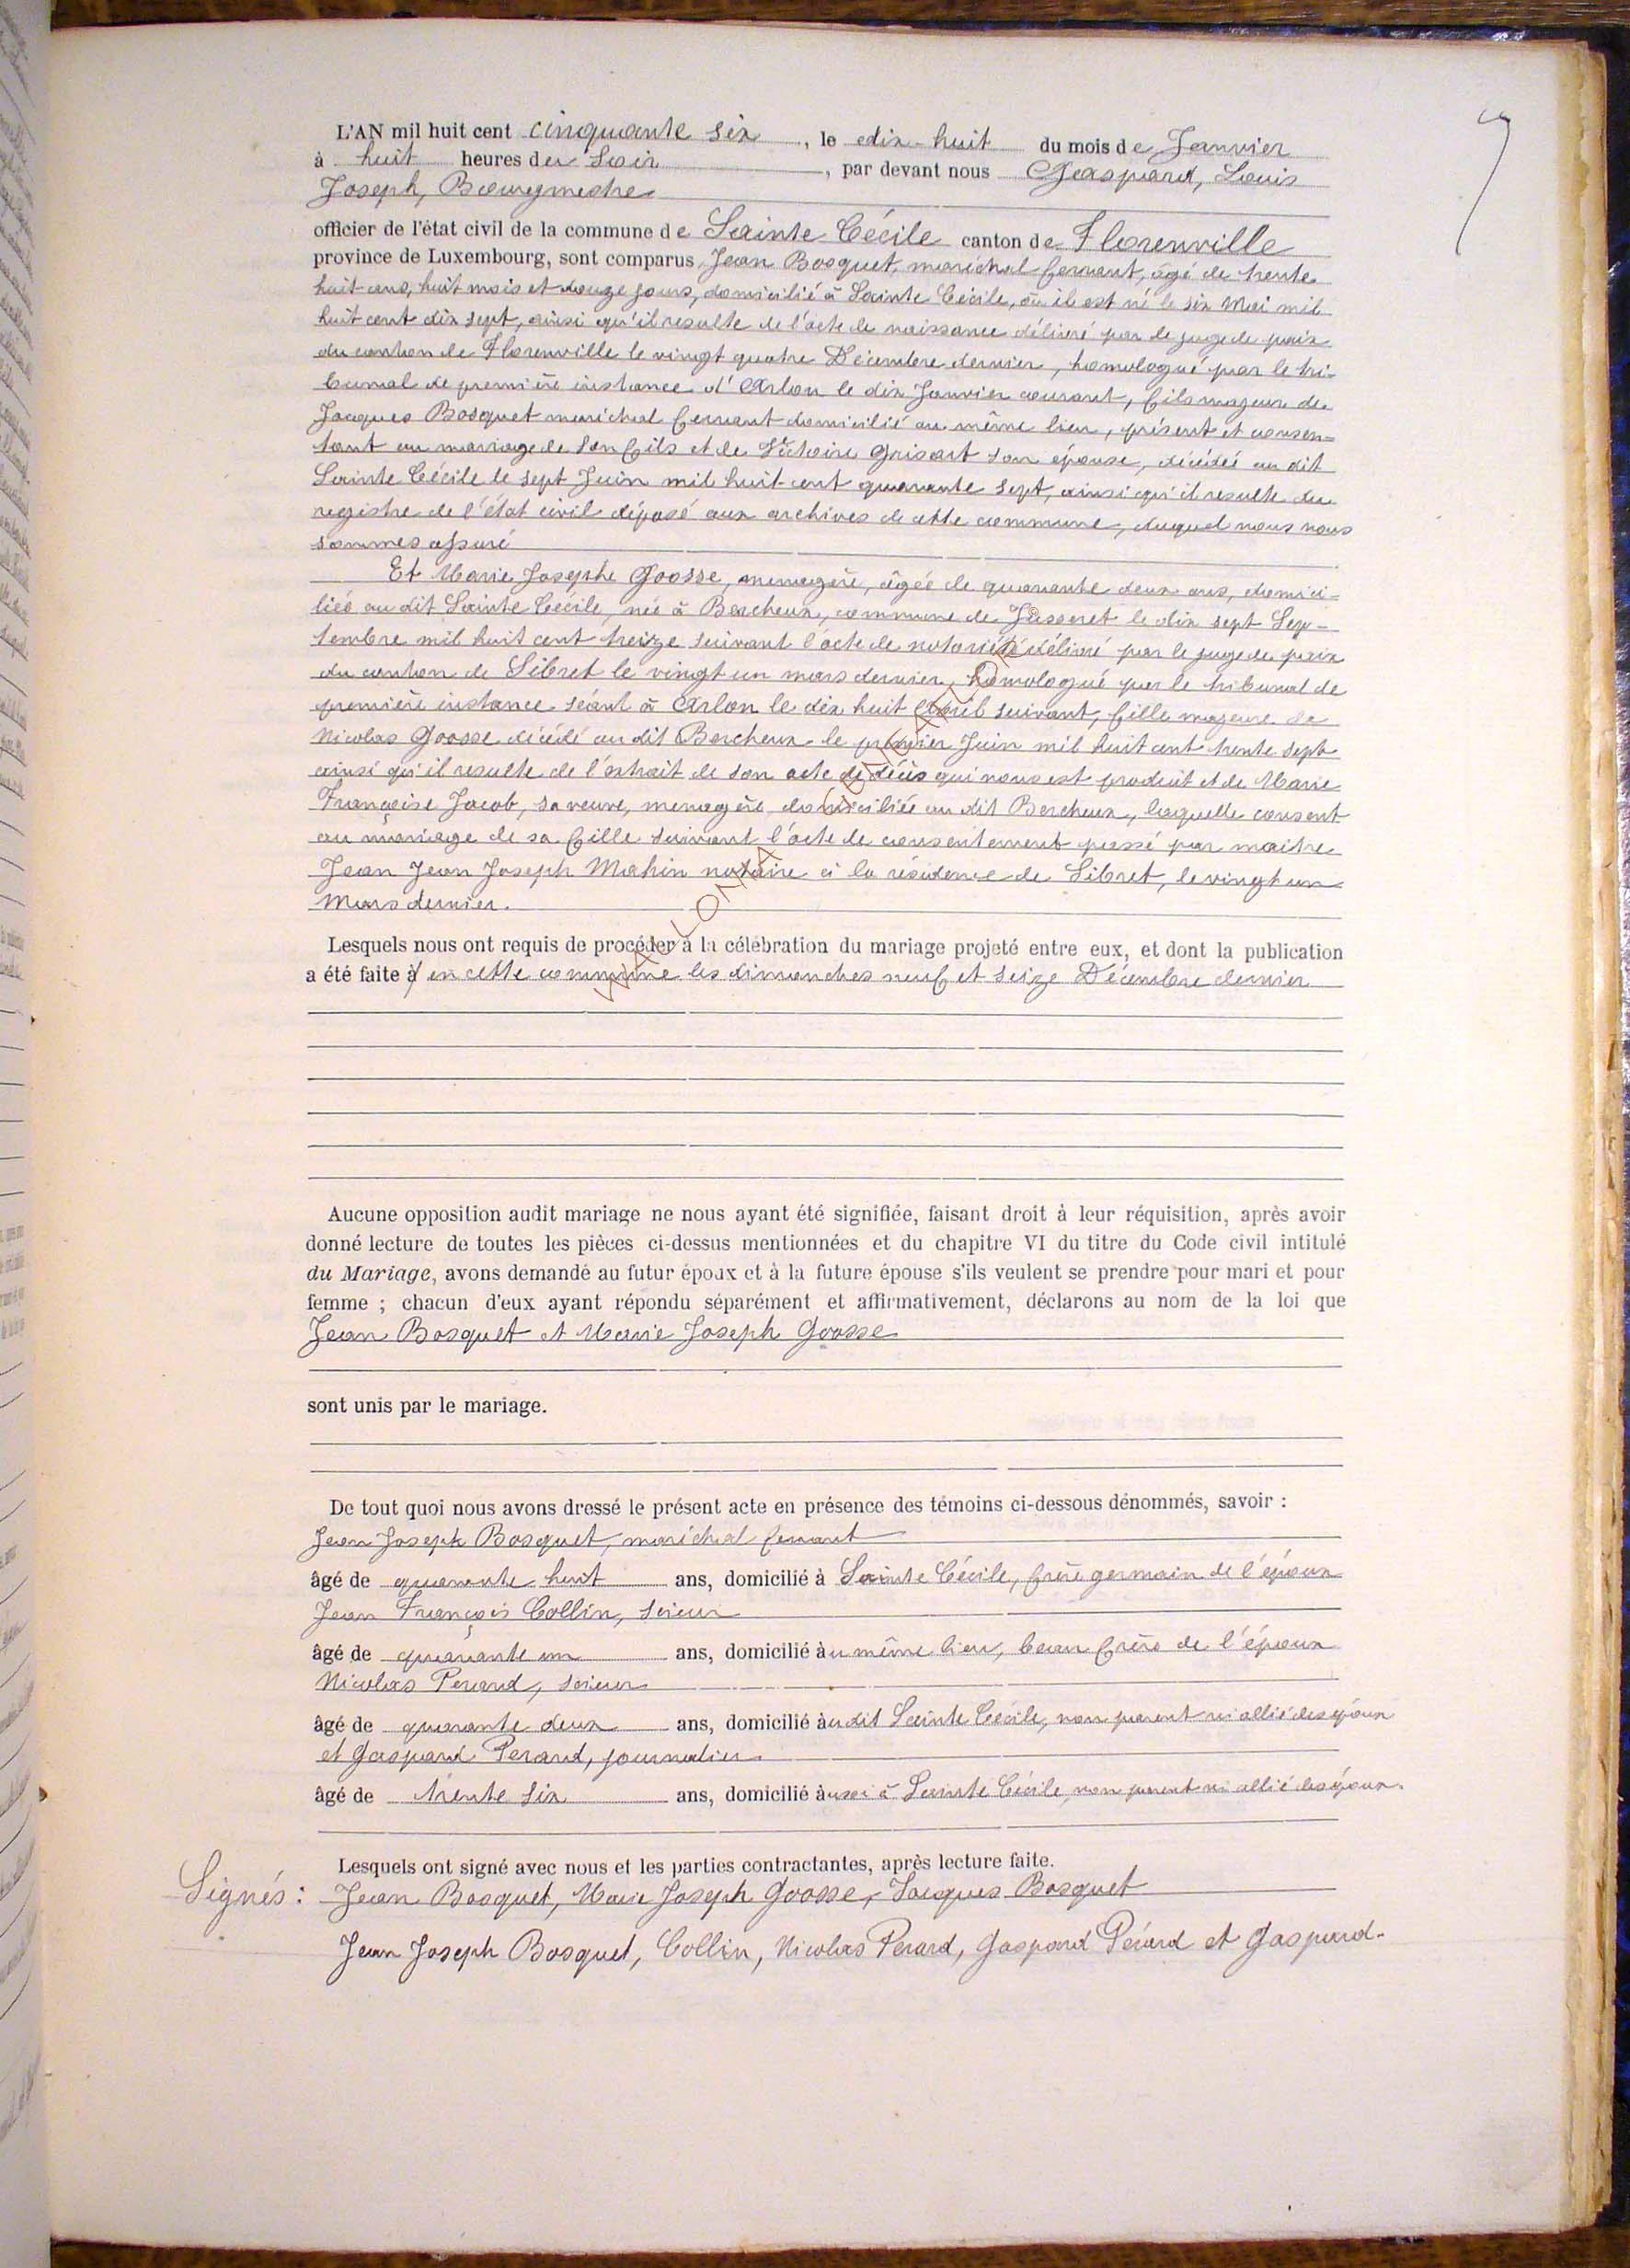 L'AN mil huit cent cinquante six, le dix-huit du mois de Janvier
à huit heures du Soir, par devant nous Gaspard, Louis
Joseph, Bourgmestre
officier de l'état civil de la commune de Sainte Cécile canton de Florenville
province de Luxembourg, sont comparus Jean Bosquet, maréchal ferrant, âgé de trente
huit ans, huit mois et douze jours, domicilié à Sainte Cécile, où il est né le six Mai mil
huit cent dix sept, ainsi qu'il resulte de l'acte de naissance délivré par le juge de paix
du canton de Florenville le vingt quatre Décembre dernier, homologué par le tri-
bunal de première instance d'Arlon le dix Janvier courant, fils majeur de
Jacques Bosquet maréchal ferrant domicilié au même lieu, présent et consen=
tant au mariage de son fils et de Victoire Grisart son épouse, décédée au dit
Sainte Cécile le sept Juin mil huit cent quarante sept, ainsi qu'il resulte du
registre de l'état civil déposé aux archives de cette commune, duquel nous nous
sommes assuré
Et Marie Josephe Goosse, menagère, âgée de quarante deux ans, domici-
liée au dit Sainte Cécile, née à Bercheux, commune de Jusseret le dix sept Sep-
tembre mil huit cent treize suivant l'acte de notoriété délivré par le juge de paix
du canton de Sibret le vingt un mars dernier, homologué par le tribunal de
première instance séant à Arlon le dix huit Avril suivant, fille majeure de
Nicolas Goosse décédé au dit Bercheux le premier Juin mil huit cent trente sept
ainsi qu'il resulte de l'extrait de son acte de décès qui nous est produit et de Marie
Françoise Jacob, sa veuve, menagère domiciliée au dit Bercheux, laquelle consent
au mariage de sa fille suivant l'acte de consentement passé par maitre
Jean Jean Joseph Mahin notaire à la résidence de Sibret, le vingt un
Mars dernier.
Lesquels nous ont requis de procéder à la célébration du mariage projeté entre eux, et dont la publication
a été faite à en cette commune les dimanches neuf et seize Décembre dernier
Aucune opposition audit mariage ne nous ayant été signifiée, faisant droit à leur réquisition, après avoir
donné lecture de toutes les pièces ci-dessus mentionnées et du chapitre VI du titre du Code civil intitulé
du Mariage, avons demandé au futur époux et à la future épouse s'ils veulent se prendre pour mari et pour
femme ; chacun d'eux ayant répondu séparément et affirmativement, déclarons au nom de la loi que
Jean Bosquet et Marie Joseph Goosse
sont unis par le mariage.
De tout quoi nous avons dressé le présent acte en présence des témoins ci-dessous dénommés, savoir :
Jean Joseph Bosquet, maréchal ferrant
âgé de quarante huit ans, domicilié à Sainte Cécile, frère germain de l'époux
Jean François Collin, scieur
âgé de quarante un ans, domicilié au même lieu, beau frère de l'époux
Nicolas Perard, scieur
âgé de quarante deux ans, domicilié au dit Sainte Cécile, non parent ni allié des époux
et Gaspard Perard, journalier
âgé de trente six ans, domicilié aussi à Sainte Cécile, non parent ni allié des époux.
Lesquels ont signé avec nous et les parties contractantes, après lecture faite.
Signés : Jean Bosquet, Marie Joseph Goosse, Jacques Bosquet
Jean Joseph Bosquet, Collin, Nicolas Perard, Gaspard Pérard et Gaspard.